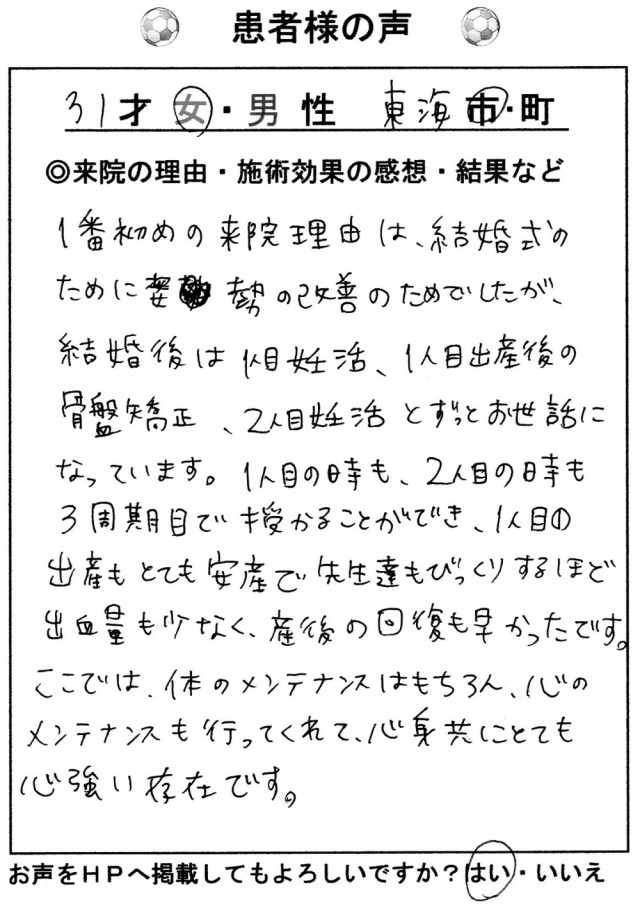 患者様の声
31才 女・男 性 東海 市・町
◎来院の理由・施術効果の感想・結果など
1番初めの来院理由は、結婚式の
ために姿勢の改善のためでしたが、
結婚後は1人目妊活、1人目出産後の
骨盤矯正、2人目妊活とずっとお世話に
なっています。1人目の時も、2人目の時も
3周期目で授かることができ、1人目の
出産もとても安産で先生達もびっくりするほど
出血量も少なく、産後の回復も早かったです。
ここでは、体のメンテナンスはもちろん、心の
メンテナンスも行ってくれて、心身共にとても
心強い存在です。
お声をHPへ掲載してもよろしいですか?はい・いいえ